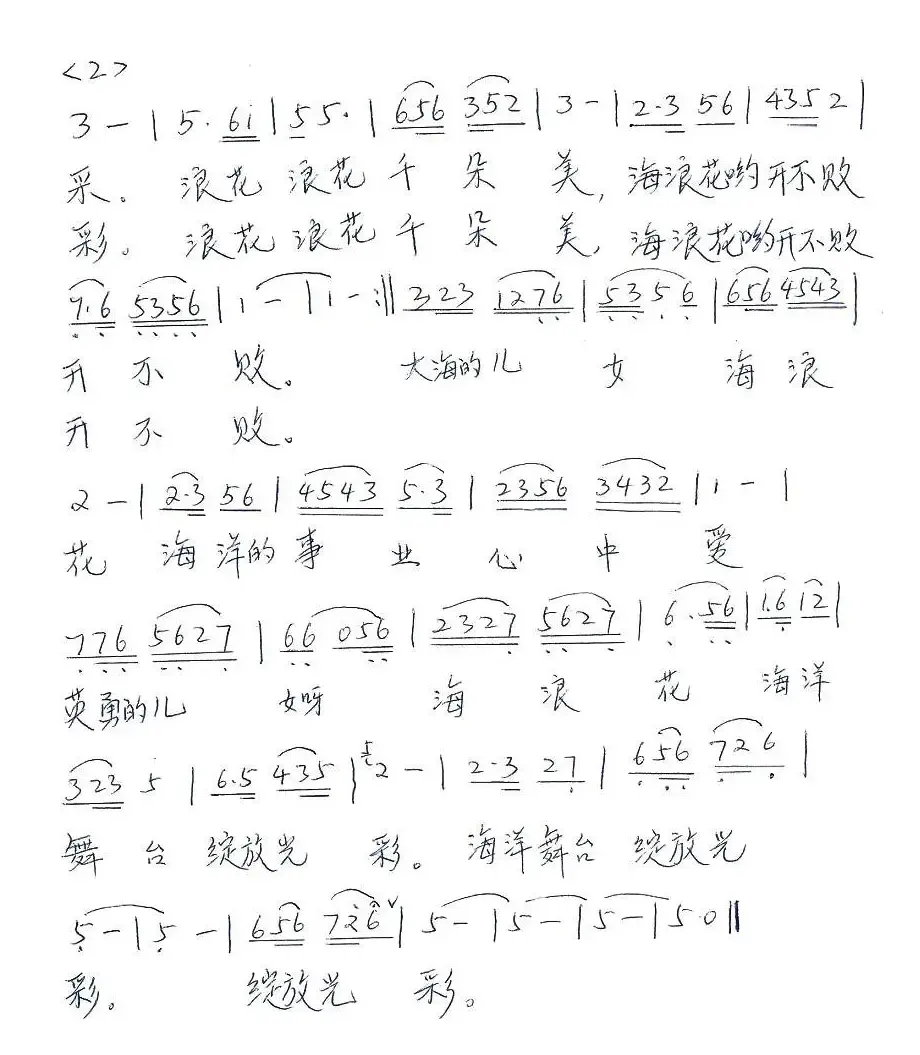 <2>
3 - | 5· 6i | 5 5· | 656 352 | 3 - | 2·3 56 | 4352 |
采。浪花 浪花 千 朵 美, 海浪花哟开不败
彩。浪花 浪花 千 朵 美, 海浪花哟开不败
7·6 5356 | 1 - | 1 - :‖ 323 1276 | 5356 | 656 4543 |
开 不 败。 大海的儿 女 海 浪
开 不 败。
2 - | 2·3 56 | 4543 5·3 | 2356 3432 | 1 - |
花 海 洋的 事 业 心 中 爱
776 5627 | 66 056 | 2327 5627 | 6·56 | 1·6 12 |
英勇的儿 女呀 海 浪 花 海 洋
323 5 | 6·5 435 | 5 2 - | 2·3 27 | 656 726 |
舞 台 绽放光 彩。 海洋舞台 绽放光
5 - | 5 - | 656 726 ∨ | 5 - | 5 - | 5 - | 5 0 ‖
彩。 绽放光 彩。